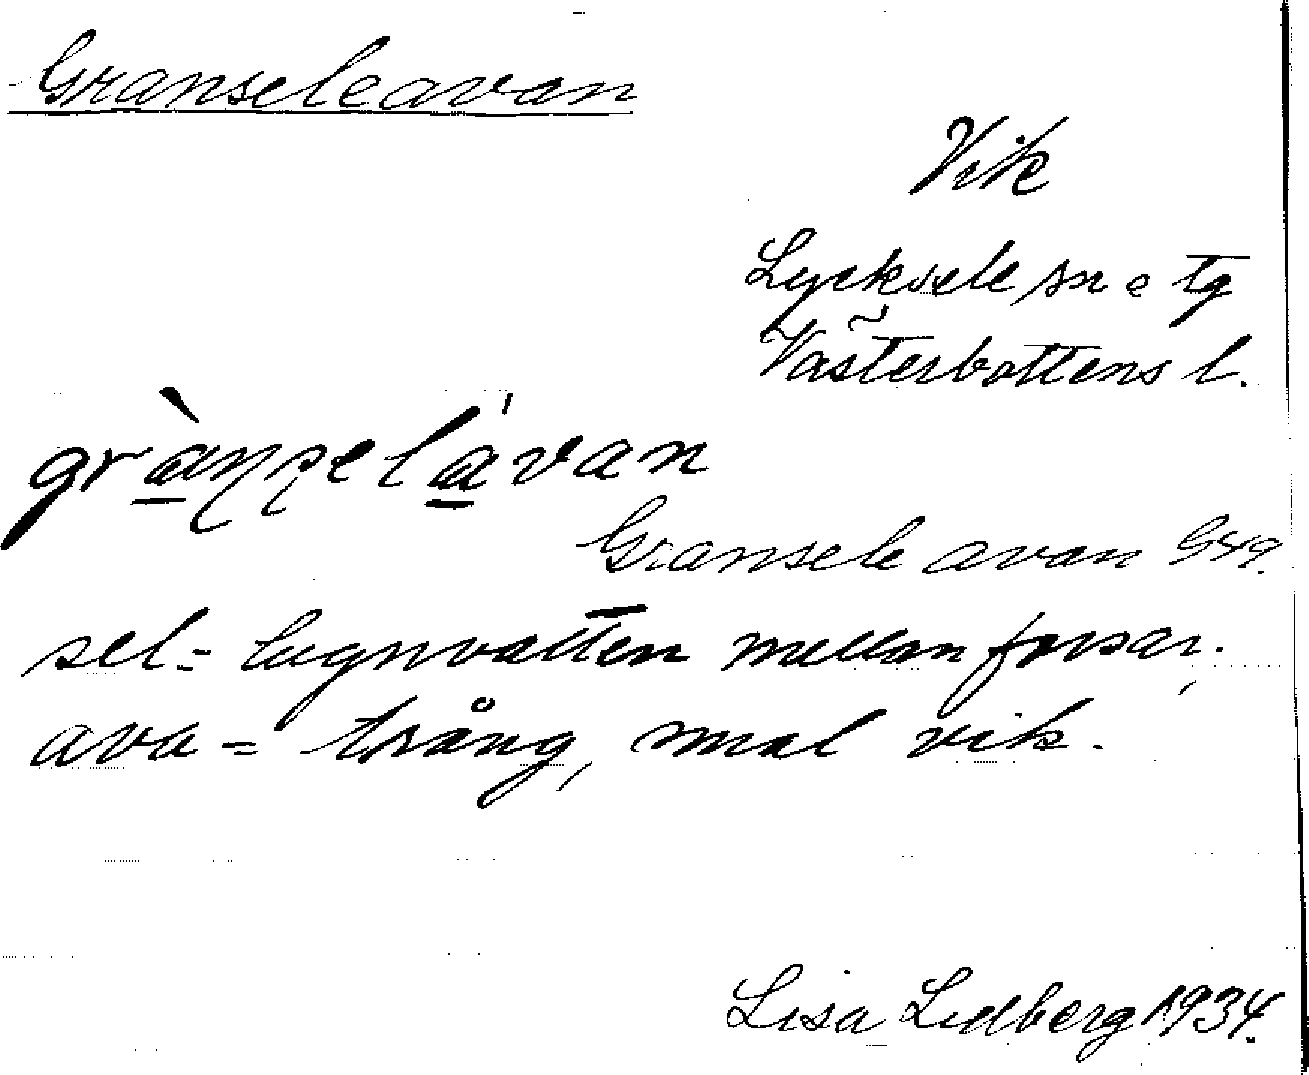 Granseleavan
Vik
Lycksele sn o tg
Västerbottens l.
grànselávan
Gransele avan G49.
sel = lugnvatten mellan forsar.
ava = trång, smal vik.
Lisa Lidberg 1934.